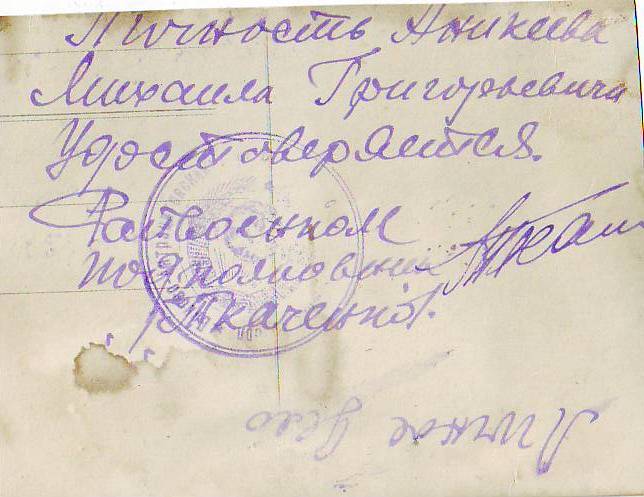 Личность Аникеева
Михаила Григорьевича
Удостоверяется.
Райвоенком
подполковник
/Ткаченко/.
Личное дело